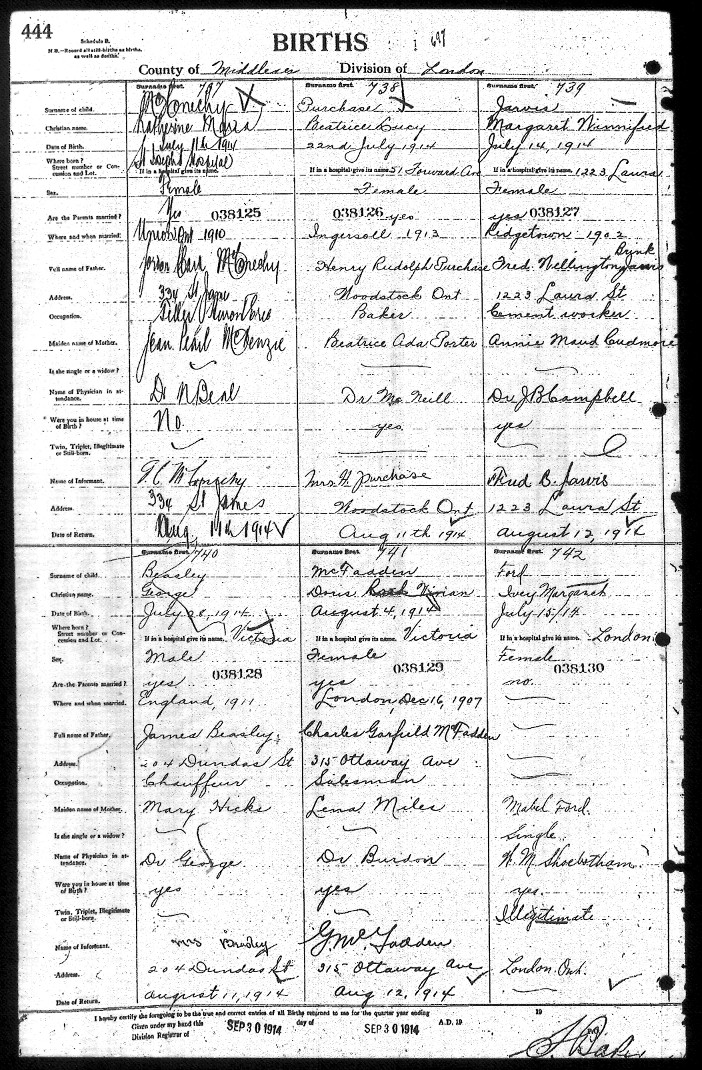 444
Schedule B.
N B.—Record all still-births as births, as well as deaths.
BIRTHS
County of Middlesex Division of London
Surname first. 737 Surname first. 738 Surname first. 739
Surname of child. McConechy Purchase Jarvis
Christian name. Katherine Beatrice Lucy Margaret Winnifred
Date of Birth. July 11th 1914 22nd July 1914 July 14, 1914
Where born? Street number or Concession and Lot. If in a hospital give its name. St Joseph's Hospital If in a hospital give its name. 51 Forward Ave If in a hospital give its name. 1223 Laura
Sex. Female Female Female
Are the Parents married? Yes 038125 038126 yes yes 038127
Where and when married. 1910 Ingersoll 1913 Ridgetown 1902
Full name of Father. McConechy Henry Rudolph Purchase Fred. Wellington Jarvis
Address. 334 St James Woodstock Ont 1223 Laura St
Occupation. Baker Cement worker
Maiden name of Mother. Jean Pearl McKenzie Beatrice Ada Poster Annie Maud Cudmore
Is she single or a widow?
Name of Physician in attendance. Dr N Beal Dr McNeill Dr J B Campbell
Were you in house at time of Birth? No. yes yes
Twin, Triplet, Illegitimate or Still-born.
Name of Informant. Mrs. H. Purchase Fred B. Jarvis
Address. 334 St James Woodstock Ont 1223 Laura St
Date of Return. Aug. 11th 1914 Aug 11th 1914 August 12, 1914
Surname first. 740 Surname first. 741 Surname first. 742
Surname of child. Beasley McFadden Ford
Christian name. George Doris Vivian Ivey Margaret
Date of Birth. July 28, 1914 August 4, 1914 July 15/14
Where born? Street number or Concession and Lot. If in a hospital give its name. Victoria If in a hospital give its name. Victoria If in a hospital give its name. London
Sex. Male Female Female
Are the Parents married? yes 038128 yes 038129 no. 038130
Where and when married. England, 1911 London, Dec 16, 1907
Full name of Father. James Beasley Charles Garfield McFadden
Address. 204 Dundas St 315 Ottaway Ave
Occupation. Chauffeur Salesman
Maiden name of Mother. Mary Hicks Lena Miles Mabel Ford.
Is she single or a widow? Single
Name of Physician in attendance. Dr George Dr Burdon W. M Shoebotham
Were you in house at time of Birth? yes yes yes.
Twin, Triplet, Illegitimate or Still-born. Illegitimate
Name of Informant. Mrs Beasley G. McFadden
Address. 204 Dundas St 315 Ottaway Ave London. Ont.
Date of Return. August 11, 1914 Aug 12, 1914
I hereby certify the foregoing to be the true and correct entries of all Births returned to me for the quarter year ending 19
Given under my hand this SEP 30 1914 day of SEP 30 1914 A.D. 19
Division Registrar of